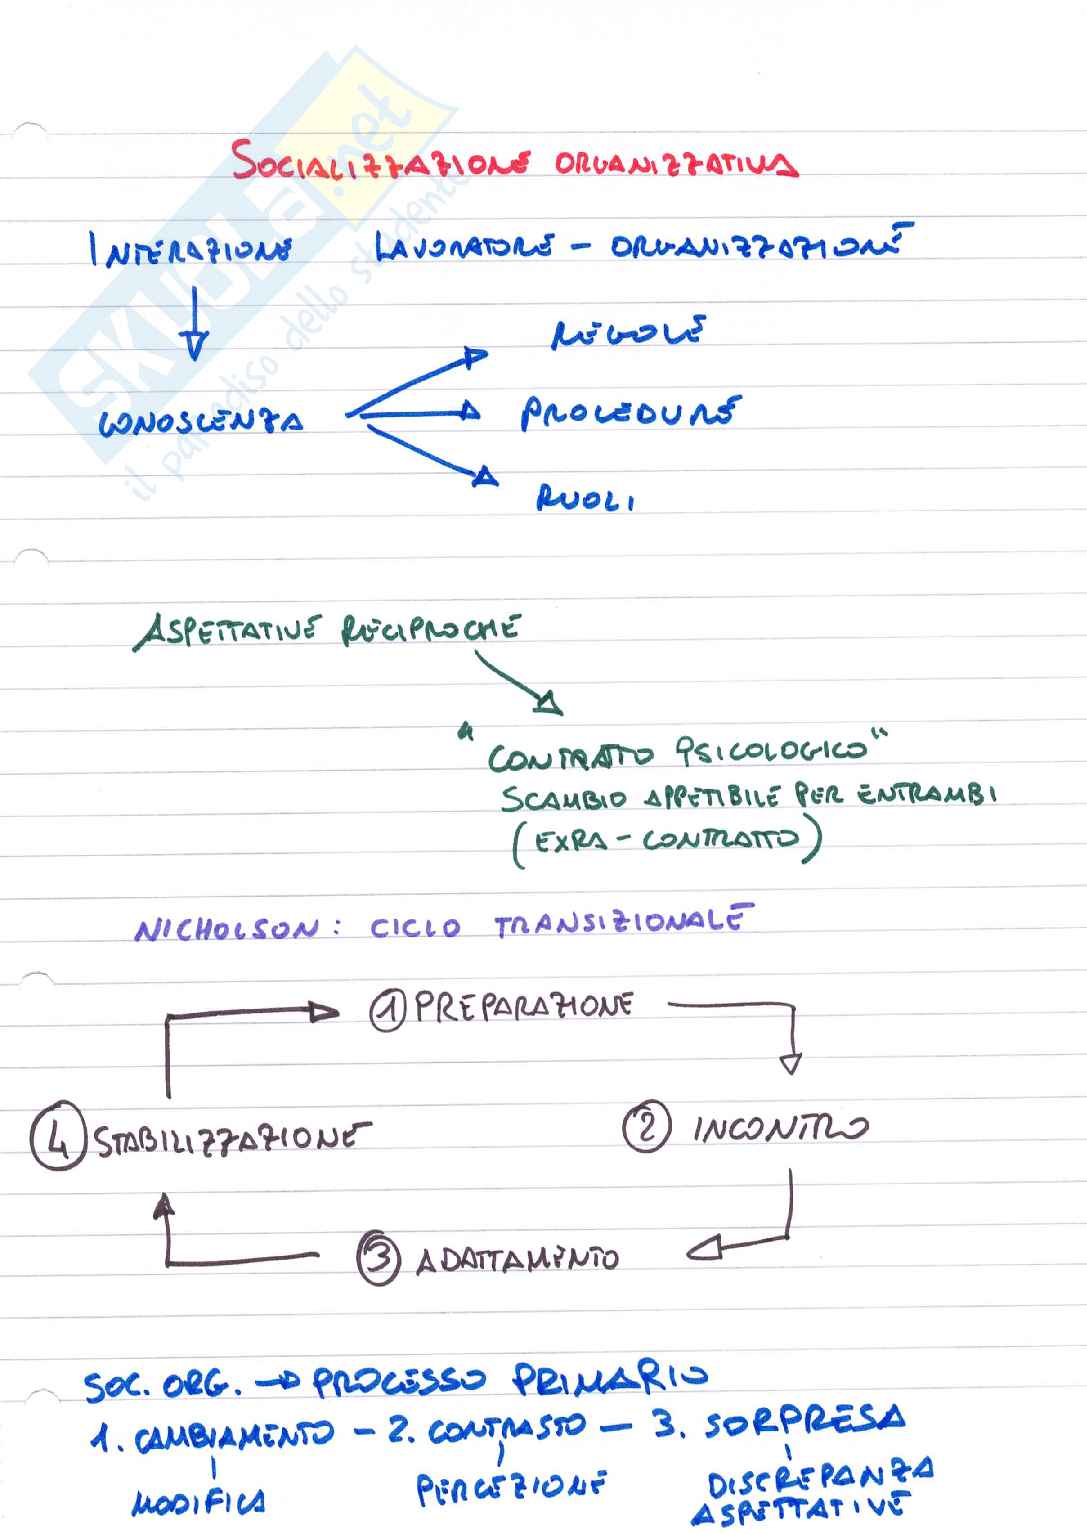 SKUOLA.net
il paradiso dello studente
SOCIALIZZAZIONE ORGANIZZATIVA
INTERAZIONE LAVORATORE - ORGANIZZAZIONE
REGOLE
CONOSCENZA PROCEDURE
RUOLI
ASPETTATIVE RECIPROCHE
"CONTRATTO PSICOLOGICO"
SCAMBIO APPETIBILE PER ENTRAMBI
(EXRA - CONTRATTO)
NICHOLSON: CICLO TRANSIZIONALE
1 PREPARAZIONE
4 STABILIZZAZIONE 2 INCONTRO
3 ADATTAMENTO
SOC. ORG. → PROCESSO PRIMARIO
1. CAMBIAMENTO - 2. CONTRASTO - 3. SORPRESA
MODIFICA PERCEZIONE DISCREPANZA
ASPETTATIVE